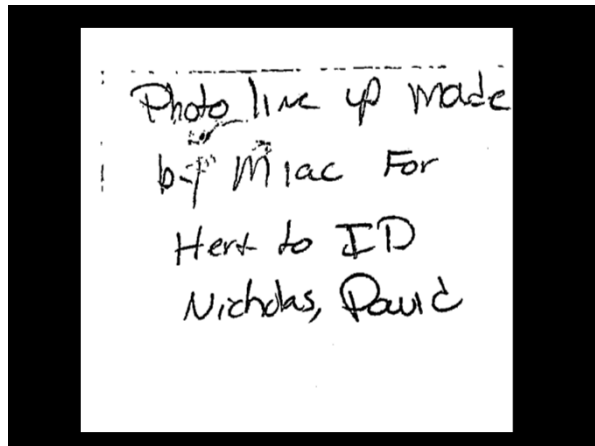 Photo line up made
by MIAC For
Hert to ID
Nicholas, David